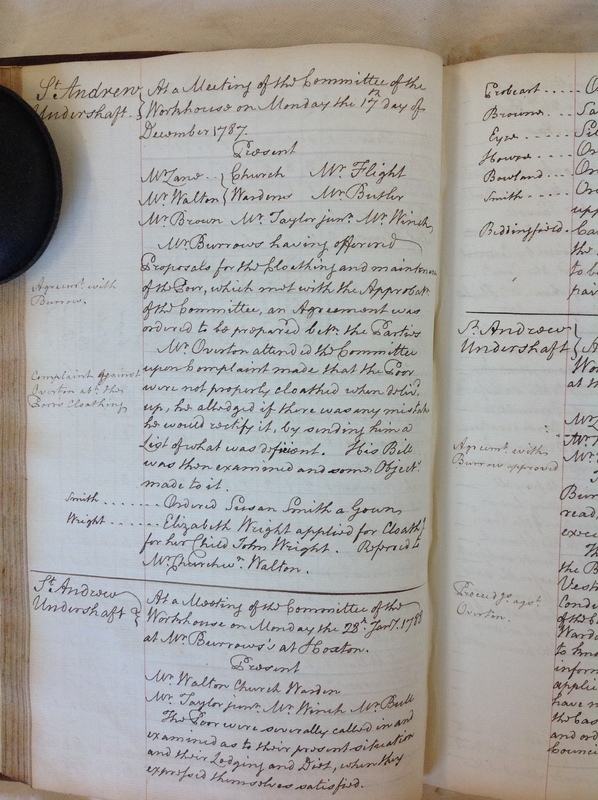 St. Andrew
Undershaft.
At a Meeting of the Committee of the
Workhouse on Monday the 17th day of
December 1787.
Present
Mr Lane .. Church Mr. Flight
Mr. Walton Wardens Mr Butler
Mr. Brown Mr. Taylor junr. Mr. Winch,
Mr. Burrows having offered
Proposals for the Cloathing and maintenance
of the Poor, which met with the Approbatn.
of the Committee, an Agreement was
ordered to be prepared bett. the Parties
Agreemt. with
Burrow.
Mr. Overton attended the Committee
upon Complaint made that the Poor
were not properly cloathed when delivd.
up, he alledged if there was any mistake
he would rectify it, by sending him a
List of what was deficient. His Bill
was then examined and some Objectn.
made to it.
Complaint against
Overton abt. the
Poors Cloathing
Smith ...... Ordered Susan Smith a Gown
Wright ...... Elizabeth Wright applied for Cloaths
for her Child John Wright. Referred to
Mr. Churchwn. Walton.
St. Andrew
Undershaft
At a Meeting of the Committee of the
Workhouse on Monday the 28th. Jany. 1788
at Mr. Burrows's at Hoxton.
Present
Mr. Walton Church Warden
Mr. Taylor junr. Mr. Winch Mr. Bull
The Poor were severally called in and
examined as to their present situation
and their Lodging and Diet, when they
expressed themselves satisfied.
Probeart .....
Browne ....
Eyre .....
Howse ....
Bowland ....
Smith ....
Beddingfield.
St. Andrew
Undershaft
Agreemt. with
Burrow approved
Proceedgs. agst.
Overton.